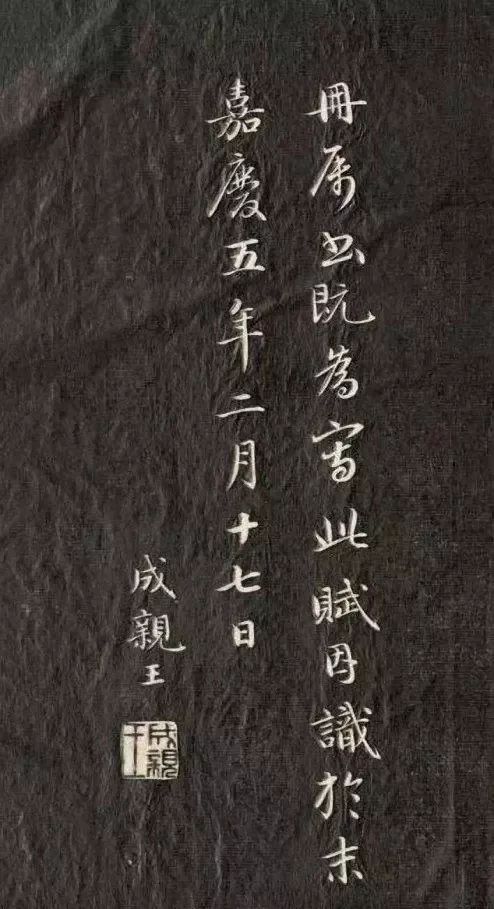 冊属書既為寫此賦因識於末
嘉慶五年二月十七日
成親王
成親王